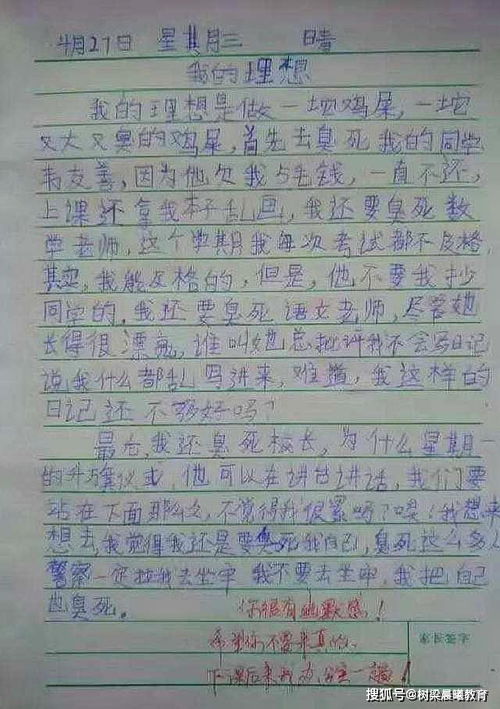 4月27日 星其月三 晴
我的理想
我的理想是做一坨鸡屎，一坨
又大又臭的鸡屎，首先去臭死我的同学
韦友善，因为他欠我5毛钱，一直不还，
上课还拿我本子乱画，我还要臭死数
学老师，这个学期我每次考试都不及格
其实，我能及格的，但是，他不要我抄
同学的，我还要臭死语文老师，尽管她
长得很漂亮，谁叫她总批评我不会写日记
说我什么都乱写进来，难道，我这样的
日记还不够好吗？
最后，我还臭死校长，为什么星期一
的升旗仪式，他可以在讲台讲话，我们要
站在下面那么久，不觉得我很累吗？唉！我想来
想去我觉得我还是要臭死我自己，臭死这么多人
警察一定拉我去坐牢 我不要去坐牢，我把自己
也臭死。 你很有幽默感！
希望你不要来真的。
家长签字
下课后来我办公室一趟！
搜狐号@树梁晨曦教育